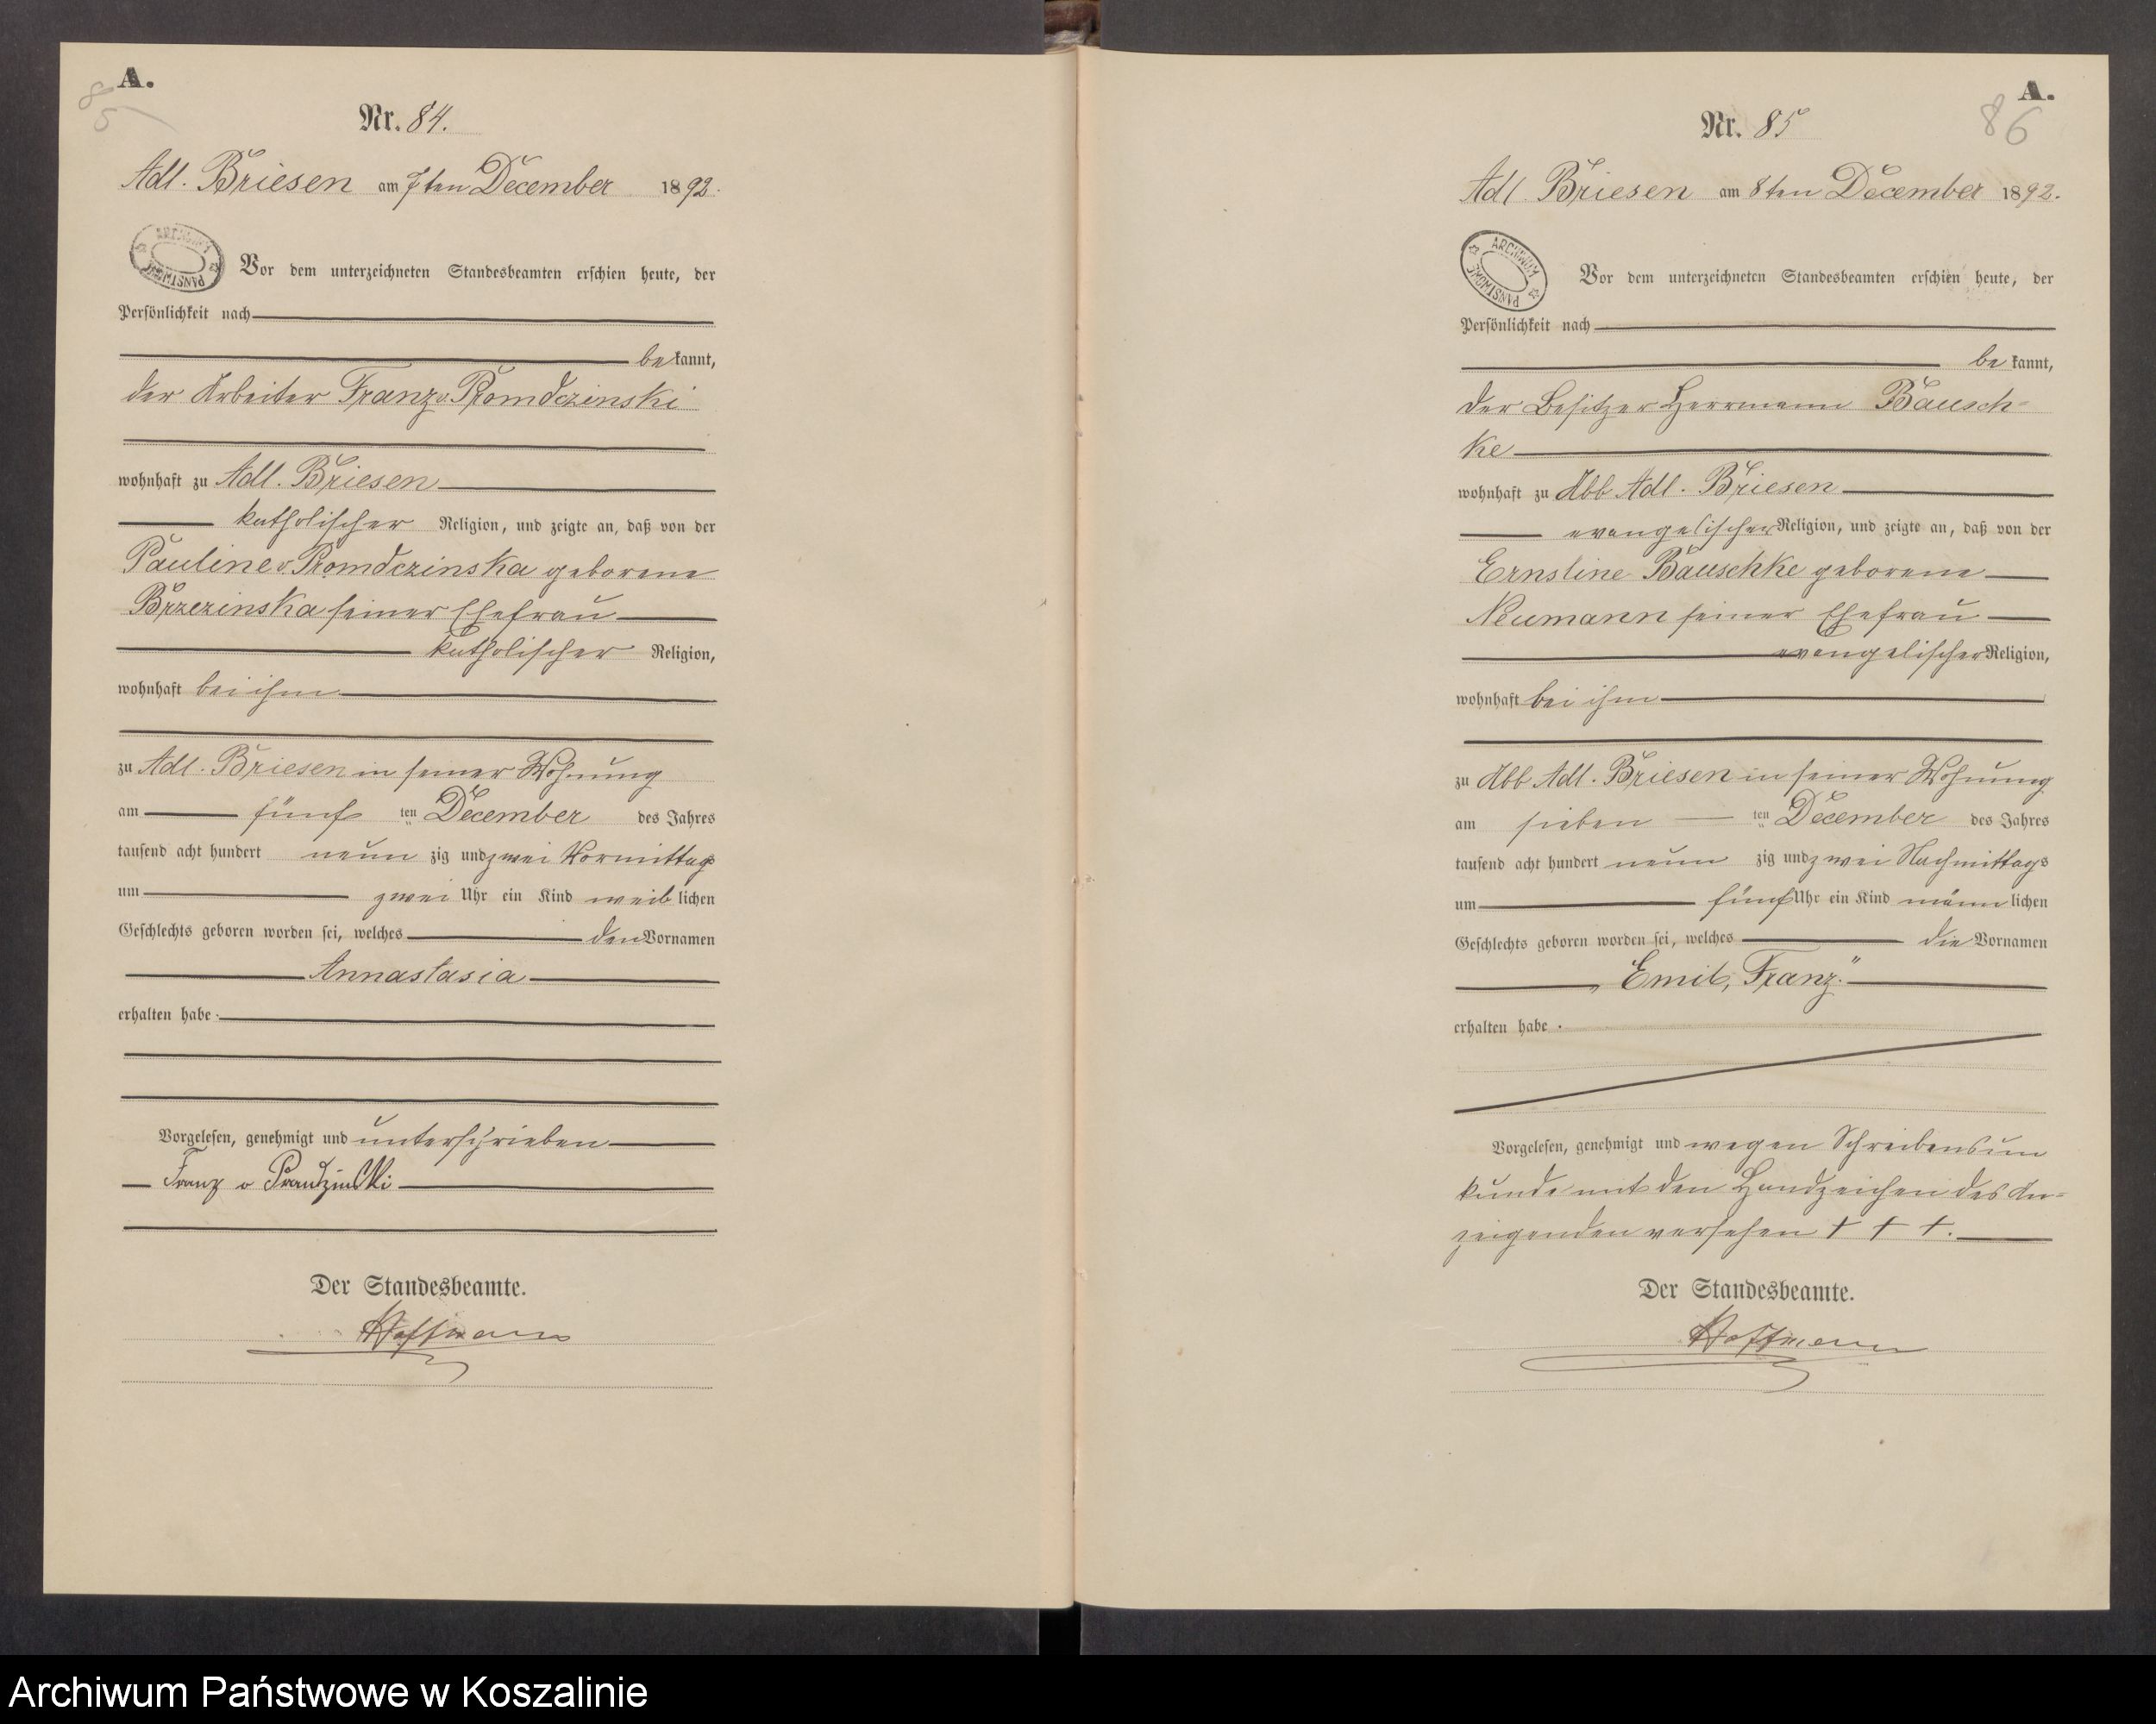 A.
85
Nr. 84.
Adl. Briesen am 7ten December 1892.
ARCHIWUM PAŃSTWOWE
Vor dem unterzeichneten Standesbeamten erschien heute, der
Persönlichkeit nach
bekannt,
der Arbeiter Franz v. Promdczinski
wohnhaft zu Adl. Briesen
katholischer Religion, und zeigte an, daß von der
Pauline v Promdczinska geborene
Brzezinska seiner Ehefrau
katholischer Religion,
wohnhaft bei ihm
zu Adl. Briesen in seiner Wohnung
am fünf ten December des Jahres
tausend acht hundert neun zig und zwei Vormittags
um zwei Uhr ein Kind weiblichen
Geschlechts geboren worden sei, welches den Vornamen
Annastasia
erhalten habe.
Vorgelesen, genehmigt und unterschrieben
Franz v
Der Standesbeamte.
Hoffmann
A.
86
Nr. 85
Adl. Briesen am 8ten December 1892.
ARCHIWUM PAŃSTWOWE
Vor dem unterzeichneten Standesbeamten erschien heute, der
Persönlichkeit nach
bekannt,
der Besitzer Herrmann Bausch-
ke
wohnhaft zu Abb Adl. Briesen
evangelischer Religion, und zeigte an, daß von der
Ernstine Bauschke geborene
Neumann seiner Ehefrau
evangelischer Religion,
wohnhaft bei ihm
zu Abb Adl. Briesen in seiner Wohnung
am sieben ten December des Jahres
tausend acht hundert neun zig und zwei Nachmittags
um fünf Uhr ein Kind männlichen
Geschlechts geboren worden sei, welches die Vornamen
„Emil, Franz."
erhalten habe.
Vorgelesen, genehmigt und wegen Schreibensun
kunde mit den Handzeichen des An-
zeigenden versehen + + +.
Der Standesbeamte.
Hoffmann
Archiwum Państwowe w Koszalinie